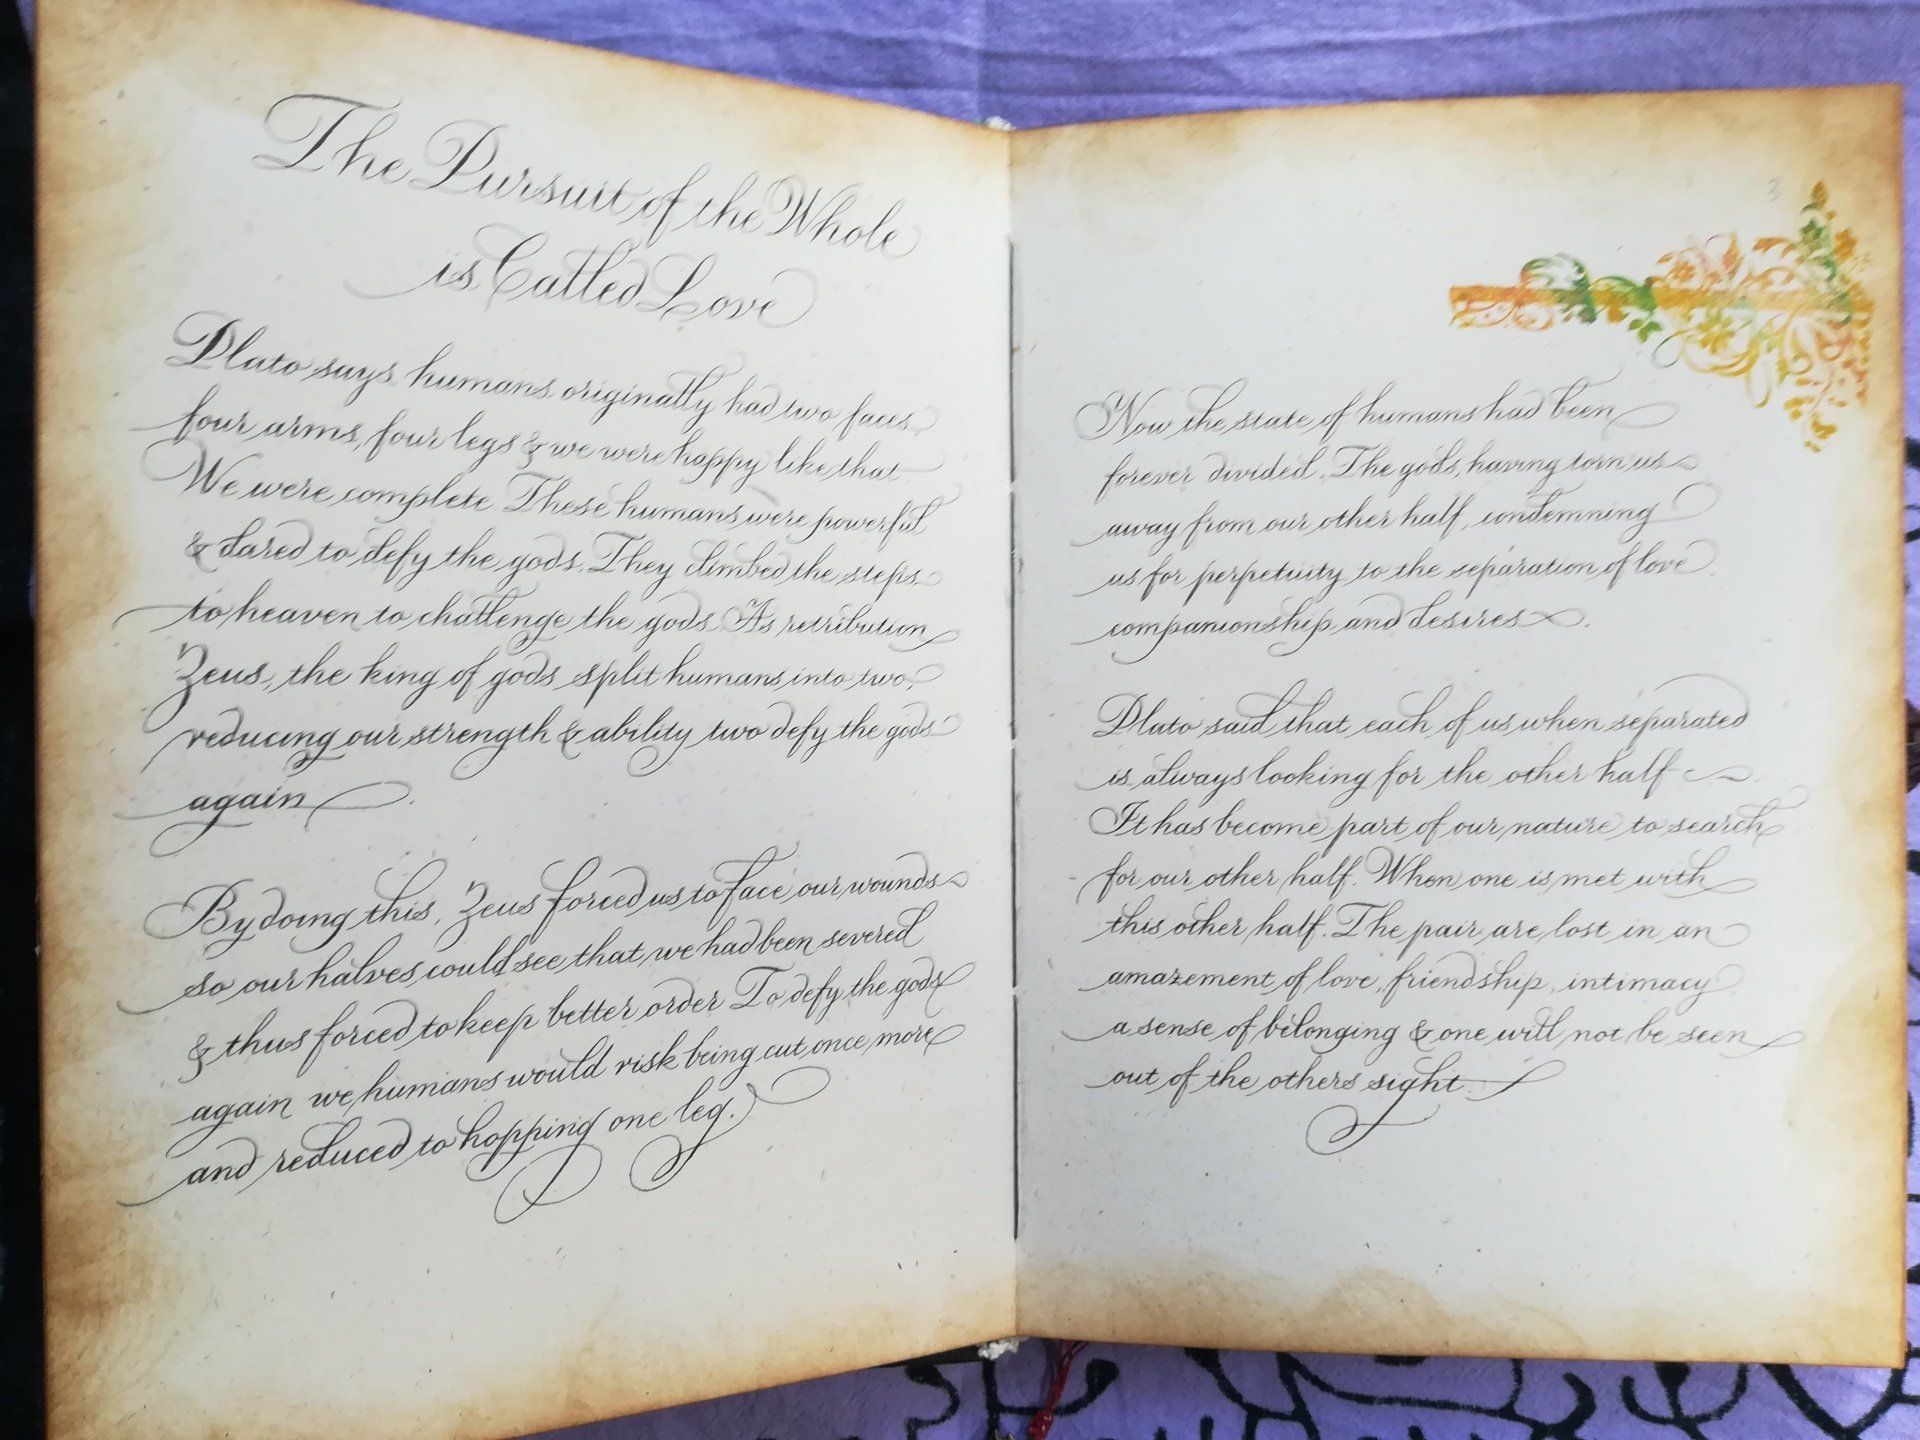 The Pursuit of the Whole
is Called Love
Plato says humans originally had two faces
four arms, four legs & we were happy like that
We were complete These humans were powerful
& dared to defy the gods. They climbed the steps
to heaven to challenge the gods. As retribution
Zeus, the king of gods split humans into two,
reducing our strength & ability two defy the gods
again.
By doing this, Zeus forced us to face our wounds
so our halves could see that we had been severed
& thus forced to keep better order To defy the gods
again we humans would risk being cut once more
and reduced to hopping one leg.
3
Now the state of humans had been
forever divided. The gods, having torn us
away from our other half, condemning
us for perpetuity to the separation of love
companionship and desires.
Plato said that each of us when separated
is always looking for the other half
It has become part of our nature to search
for our other half. When one is met with
this other half. The pair are lost in an
amazement of love, friendship, intimacy
a sense of belonging & one will not be seen
out of the others sight.